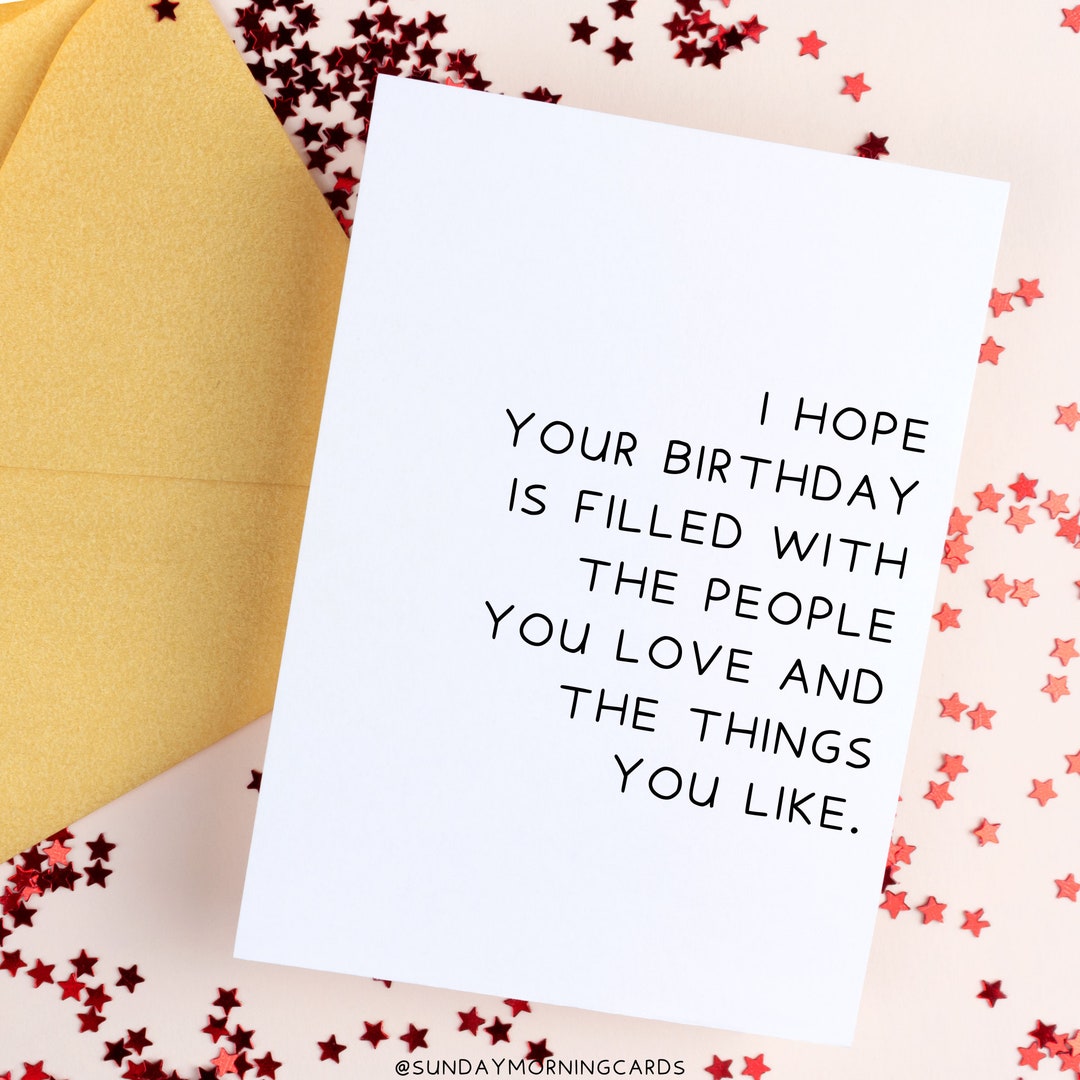 I HOPE
YOUR BIRTHDAY
IS FILLED WITH
THE PEOPLE
YOU LOVE AND
THE THINGS
YOU LIKE.
@SUNDAYMORNINGCARDS